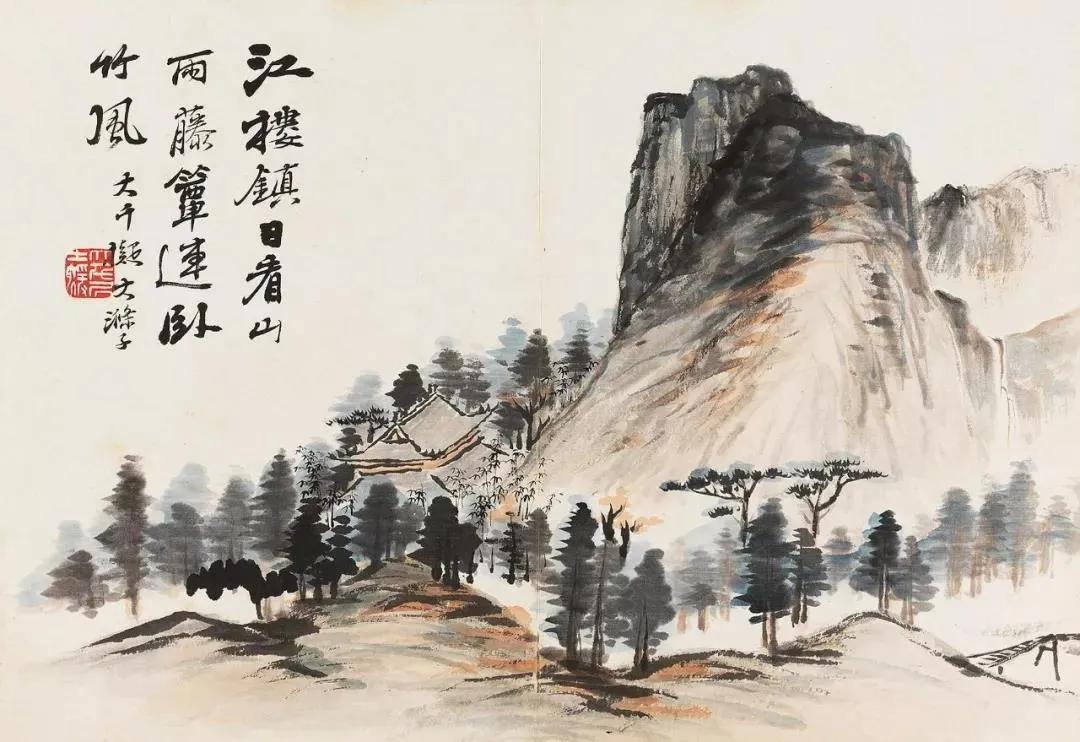 江樓鎮日看山
雨藤簟連臥
竹風
大千擬大滌子